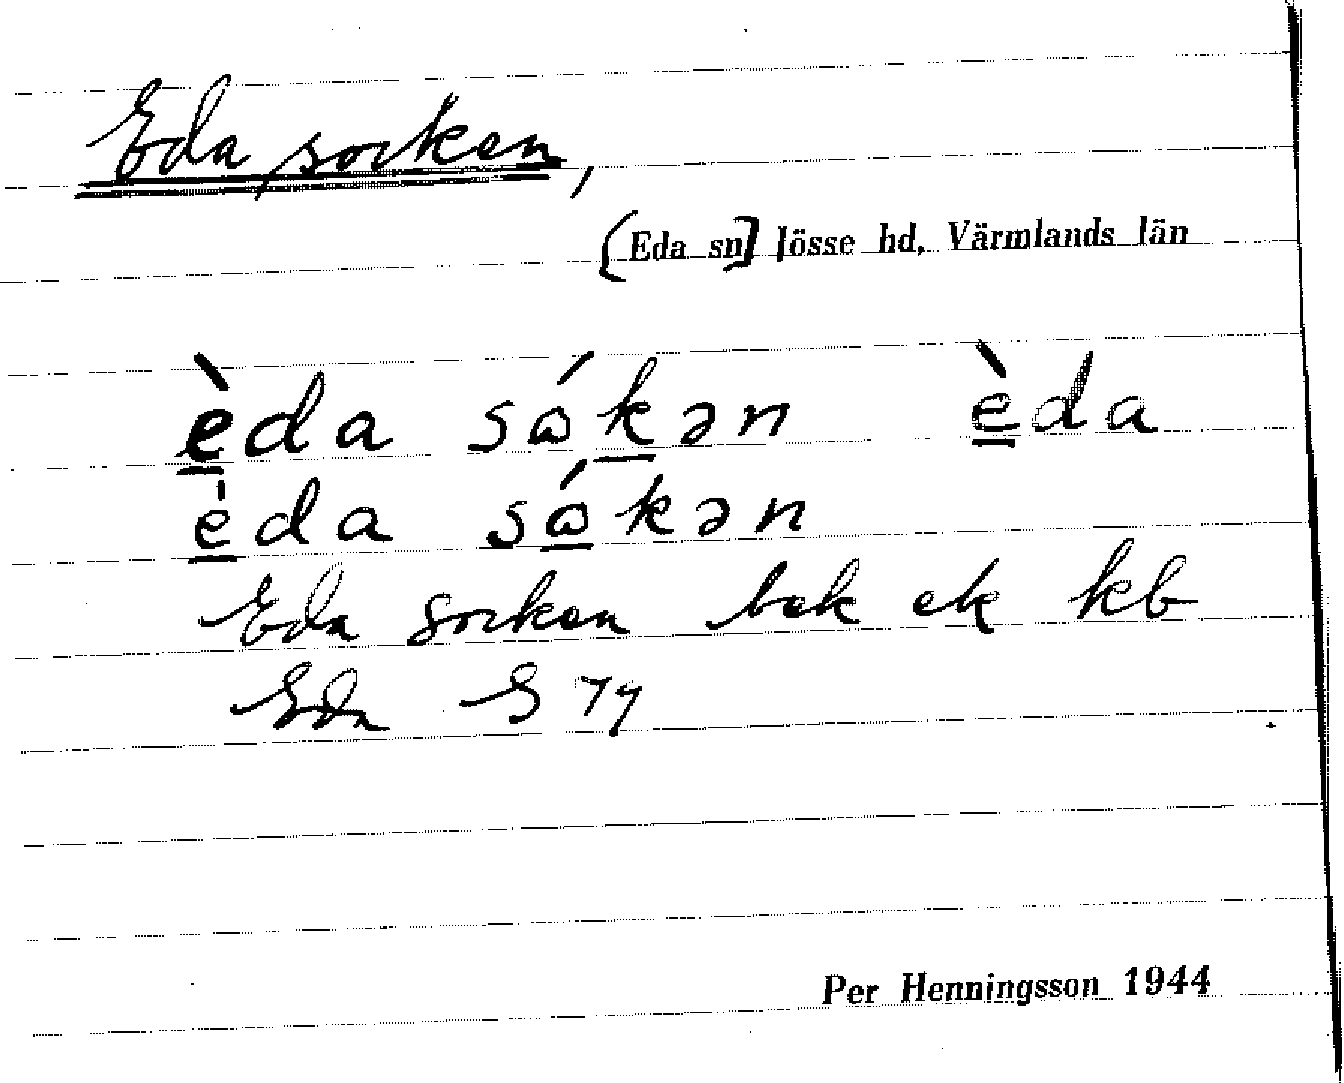 Eda socken,
[Eda sn] Jösse hd, Värmlands län
èda såkən èda
èda såkən
Eda socken bek ek kb
Eda S 79
Per Henningsson 1944